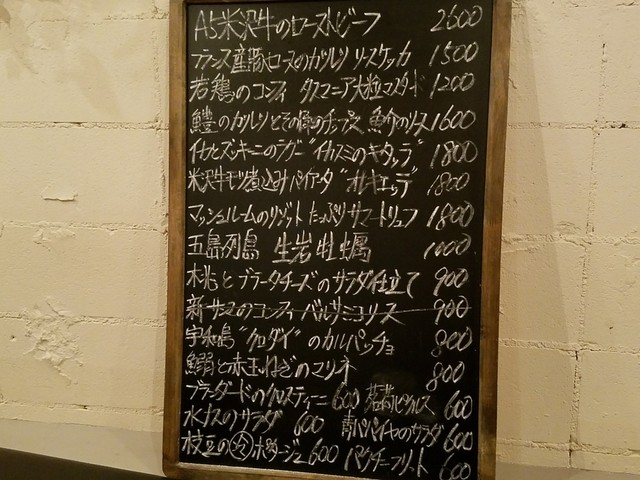 A5米沢牛のローストビーフ 2600
フランス産豚ロースのガルソ リースケッカ 1500
若鶏のコンフィ タスマニア大粒マスタード 1200
鱧の 1600
イカとズッキーニのラグー "イカスミのキタッラ" 1800
米沢牛モツ煮込みパイアータ "オレキエッテ" 1800
マッシュルームのリゾット たっぷりサマートリュフ 1800
五島列島 生岩牡蠣 1000
木桃とブラータチーズのサラダ仕立て 900
新サンマのコンフィ バルサミコソース 900
宇和島"クロダイ"のカルパッチョ 800
鰯と赤玉ねぎのマリネ 800
ブランダードのクロスティーニ 600 茗荷ピクルス 600
水ナスのサラダ 600 青パパイヤのサラダ 600
枝豆の冷ポタージュ 600 パクチーフリット 600